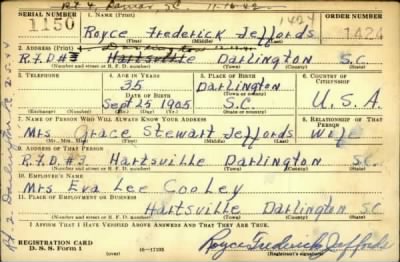 Rt 4 Lamar S.C. 11-16-42
SERIAL NUMBER 1. NAME (Print) ORDER NUMBER
1150 Royce Frederick Jeffords 1424 1424
(First) (Middle) (Last)
2. ADDRESS (Print) Darlington
R.F.D #3 Hartsville Darlington S.C.
(Number and street or R. F. D. number) (Town) (County) (State)
3. TELEPHONE 4. AGE IN YEARS 5. PLACE OF BIRTH 6. COUNTRY OF CITIZENSHIP
35 Darlington
DATE OF BIRTH
Sept 25 1905 S.C. U.S.A.
(Exchange) (Number) (Mo.) (Day) (Yr.) (State or country)
7. NAME OF PERSON WHO WILL ALWAYS KNOW YOUR ADDRESS 8. RELATIONSHIP OF THAT PERSON
Mrs Grace Stewart Jeffords Wife
(Mr., Mrs., Miss) (First) (Middle) (Last)
9. ADDRESS OF THAT PERSON
R.F.D. #3 Hartsville Darlington S.C.
(Number and street or R. F. D. number) (Town) (County) (State)
10. EMPLOYER'S NAME
Mrs Eva Lee Cooley
11. PLACE OF EMPLOYMENT OR BUSINESS
Hartsville Darlington S.C.
(Number and street or R. F. D. number) (Town) (County) (State)
I AFFIRM THAT I HAVE VERIFIED ABOVE ANSWERS AND THAT THEY ARE TRUE.
REGISTRATION CARD
D. S. S. Form 1 (over) 16—17105 Royce Frederick Jeffords
(Registrant's signature)
Rt. 2 Darlington